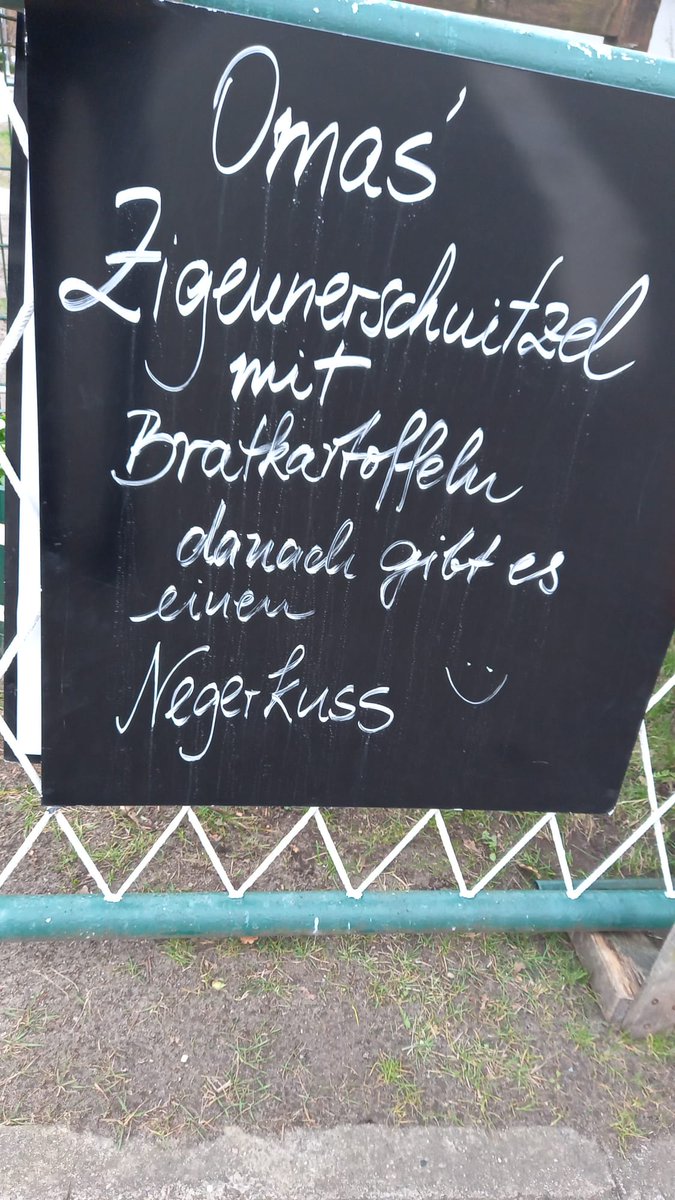 Omas'
Zigeunerschnitzel
mit
Bratkartoffeln
danach gibt es
einen
Negerkuss